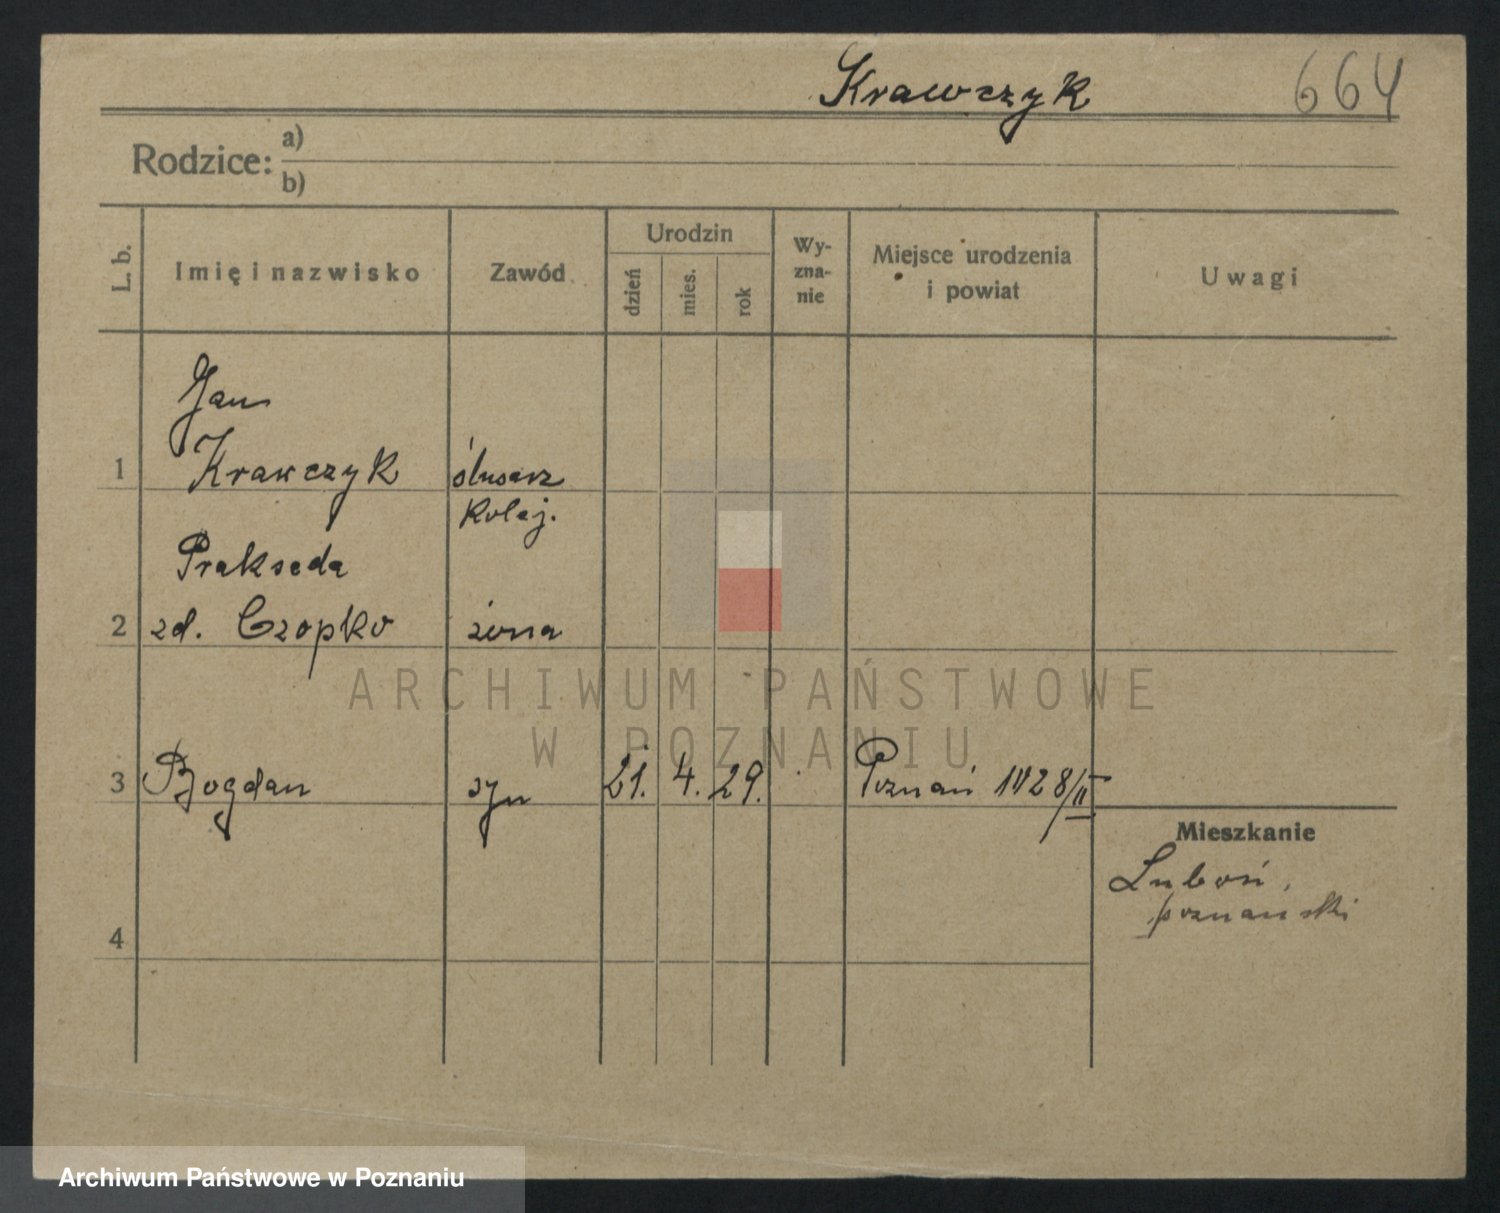 Krawczyk 664
Rodzice: a)
b)
L. b. Imię i nazwisko Zawód Urodzin dzień mies. rok Wy-zna-nie Miejsce urodzenia i powiat Uwagi
Jan
1 Krawczyk ślusarz
kolej.
Prakseda
2 zd. Czopko żona
ARCHIWUM PAŃSTWOWE
W POZNANIU
3 Bogdan syn 21. 4. 29. Poznań 1128/II
Mieszkanie
Luboń,
poznański
4
Archiwum Państwowe w Poznaniu